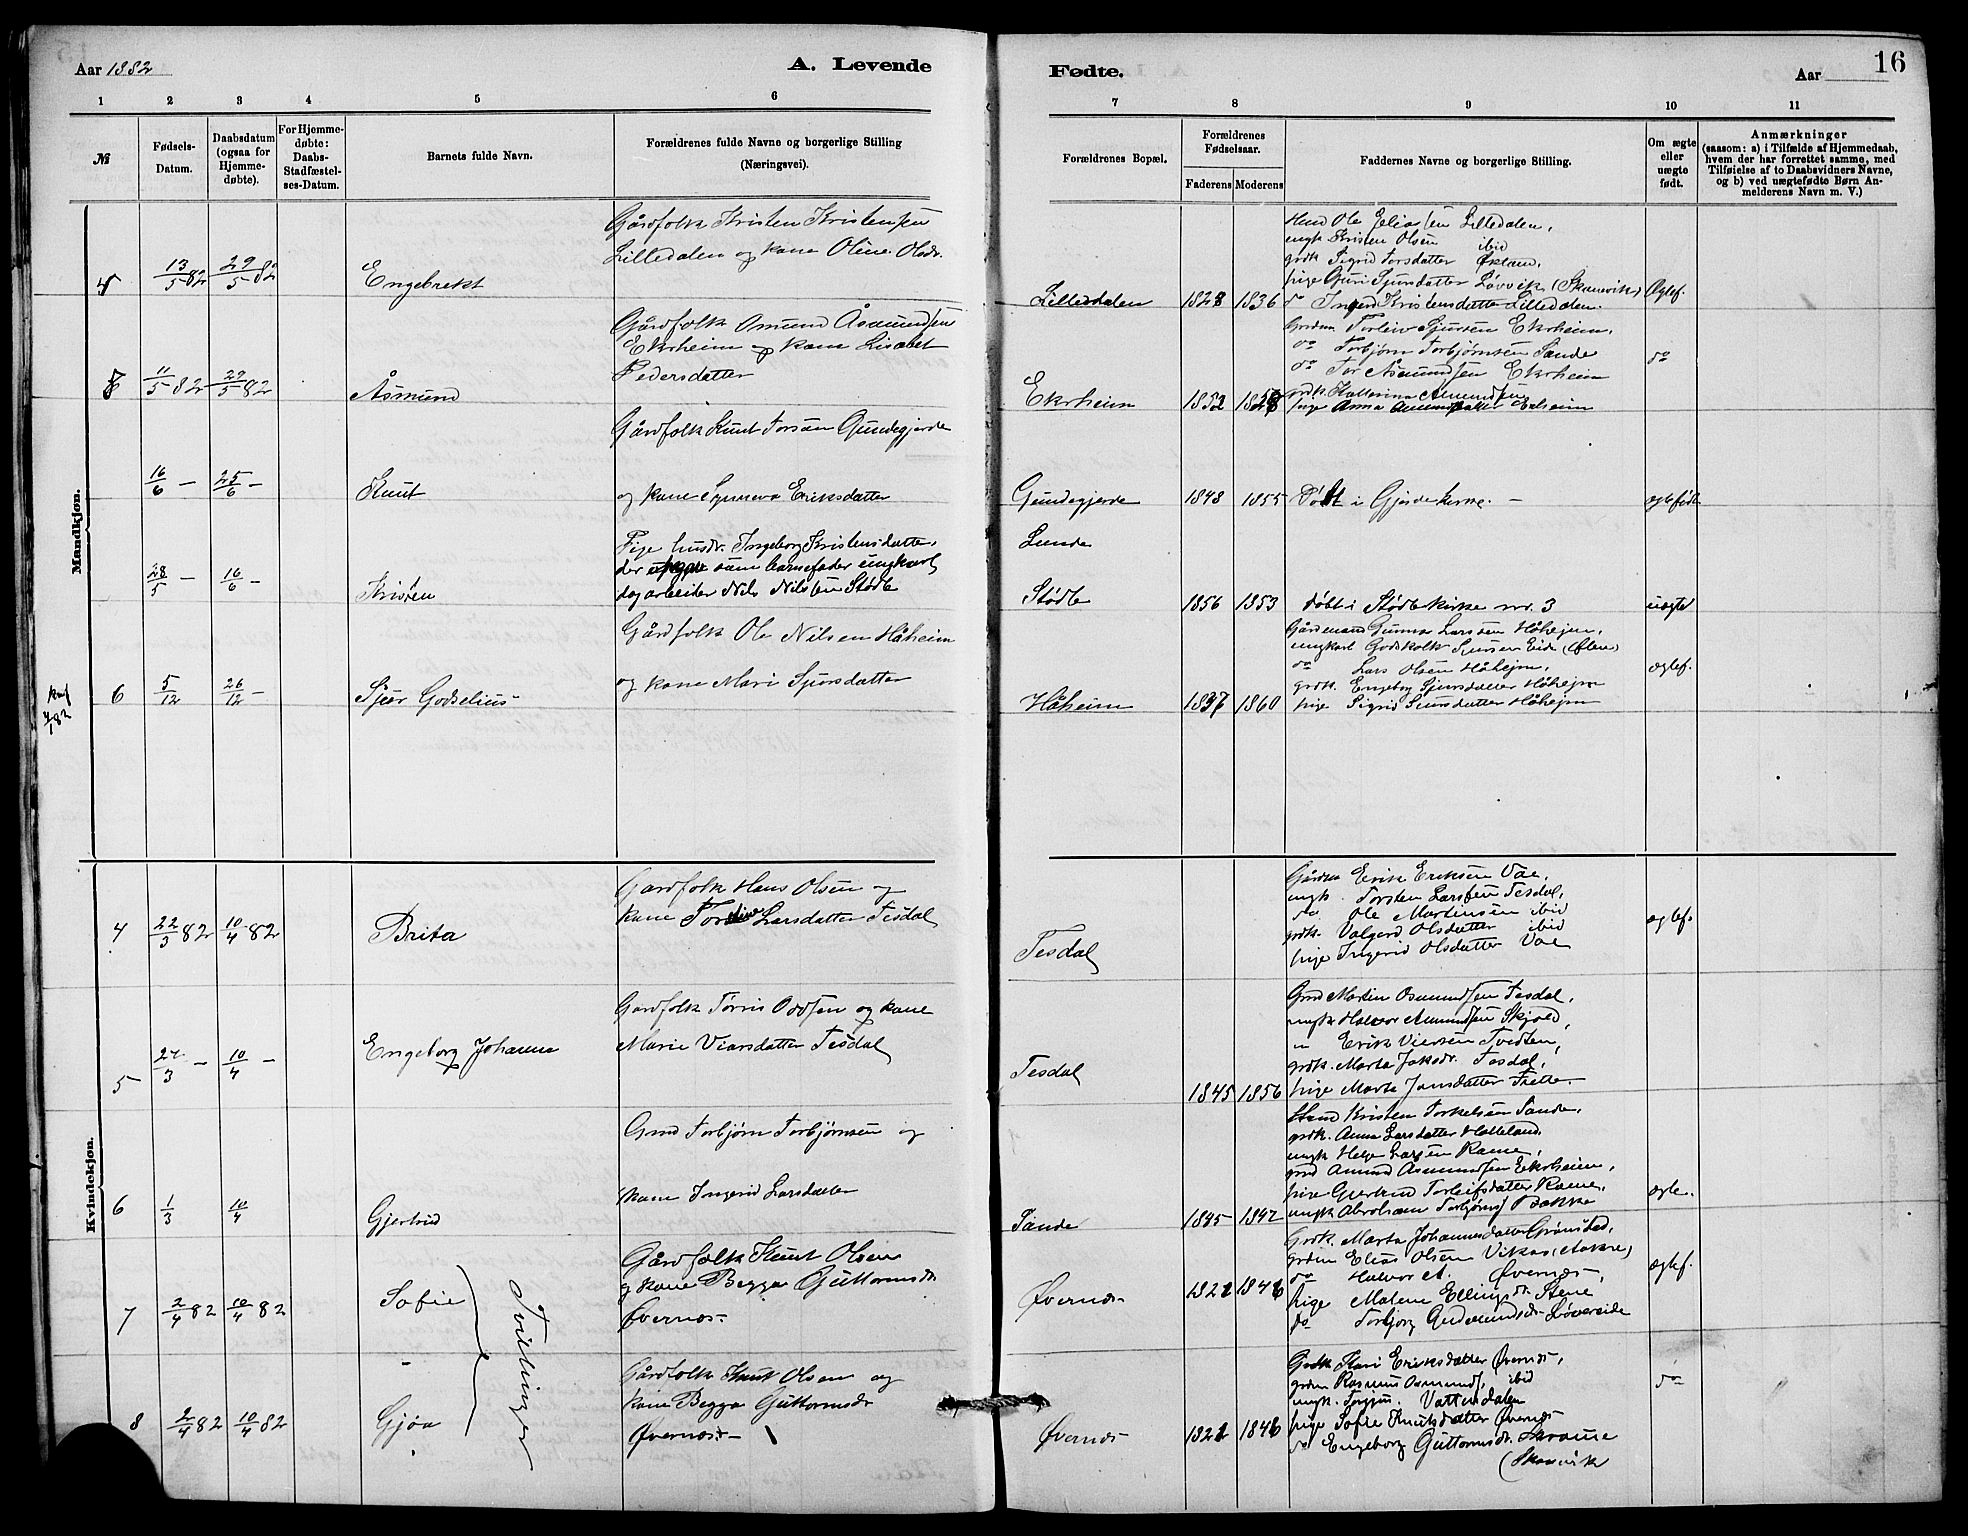 Aar 1882
A. Levende
Fødte.
Aar
16
1 2 3 4 5 6 7 8 9 10 11
№
Fødsels-
Datum.
Daabsdatum
(ogsaa for
Hjemme-
døbte).
For Hjemme-
døbte:
Daabs-
Stadfæstel-
ses-Datum.
Barnets fulde Navn.
Forældrenes fulde Navne og borgerlige Stilling
(Næringsvei).
Forældrenes Bopæl.
Forældrenes
Fødselsaar.
Faderens Moderens
Faddernes Navne og borgerlige Stilling.
Om ægte
eller
uægte
født.
Anmærkninger
(saasom: a) i Tilfælde af Hjemmedaab,
hvem der har forrettet samme, med
Tilføielse af to Daabsvidners Navne,
og b) ved uægtefødte Børn An-
melderens Navn m. V.)
Mandkjøn.
13/5 82 29/5 82
Engebrekt
Gårdfolk Kristen Kristensen
Lilledalen og kone Oline Olsdr.
Lilledalen 1828 1836
Hmd Ole Eliassen Lilledalen,
ungk Kristen Olsen ibid
grdk Sigrid Torsdatter Økland,
pige Guri Sjursdatter Løvvik (Skonevik)
do Inger Kristensdatter Lilledalen.
Ægtef.
11/5 82 29/5 82
Åsmund
Gårdfolk Amund Åsmundsen
Ekrheim og kone Lisabet
Pedersdatter
Ekrheim 1852 1858
Grdm Torleiv Sjursen Ekrheim,
do Torbjørn Torbjørnsen Sande
do Tor Åsmundsen Ekrheim
pige Anna
do
16/6 - 25/6 -
Knut
Gårdfolk Knut Torsen Gundegjerde
og kone Synneva Eriksdatter
Gundegjerde 1848 1855
Døbt i Gjerde kirke. -
ægtefødt
28/5 - 16/6 -
Kristen
Pige husdr. Ingeborg Kristensdatter,
der som barnefader ungkarl
dagarbeider Nils Nilssen Stødle
Lunde
Stødle 1856 1853
døbt i Stødle kirke no. 3
uægte
6 5/12 26/12 -
Sjur Godselius
Gårdfolk Ole Nilsen Håheim
og kone Mari Sjursdatter
Håheim 1837 1860
Gårdmand Gunnar Larssen Håhejm,
ungkarl Godskolk Sjursen Eide (Ølen)
do Lars Olsen Håhejm,
grdk. Engeborg Sjursdatter Håhejm
pige Sigrid Sjursdatter Håhejm
ægtef.
Kvindekjøn.
4 22/3 82 10/4 82
Brita
Gårdfolk Hans Olsen og
kone Larsdatter Tesdal
Tesdal
Gårdm Erik Eriksen Vae,
ungk. Torsten Larssen Tesdal,
do. Ole Martensen ibid
grdk. Valgerd Olsdatter ibid
pige Ingerid Olsdatter Vae
ægtef.
5 24/3 - 10/4 -
Engeborg Johanna
Gårdfolk Tørris Oddsen og kone
Marie Viarsdatter Tesdal
Tesdal
1845 1856
Grd Martin Osmundsen Tesdal,
ungk Halvor Amundsen Skjold,
" Erik Viersen Tvedten,
grdk. Marta Jakobdr. Tesdal,
pige Marta Jonsdatter Frette.
6 1/3 10/4
Gjertrud
Grmd Torbjørn Torbjørnsen og
kone Ingerid Larsdatter
Sande 1845 1847
Hmd Kristen Torkelsen Sande,
grdk. Anna Larsdatter Halleland.
ungk Helge Larsen Rame,
grd Amund Asmundsen Ekrheim,
pige Gjertrud Torleifsdatter Rame,
ungk Abraham Torbjørns Bakke
ægte.
7 2/4 82 10/4 82
Sofie
Tvillinger
Gårdfolk Knut Olsen
og kone Begga Guttormsdr.
Øvernæs.
Øvernæs 1821 1846
Grdk. Marta Johannesdatter Grønstad,
grdm Elias Olsen Vikas (Aakre)
do Halvor A. Øvernæs,
pige Malene Ellingsdr. Stene
do Torbjørg Løvereide
ægtef.
8 2/4 82 10/4 82
Gjøa
Gårdfolk Knut Olsen og
kone Begga Guttormsdr
Øvernæs -
Øvernæs 1821 1846
Grdk Kari Eriksdatter Øvernæs,
grdm Rasmus Osmunds. ibid
ungk. Torjus Vattendalen
pige Sofie Knutsdatter Øvernæs
do Engeborg Guttormsdr.
(Skonevik
do